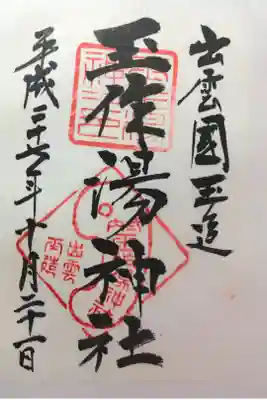 出雲國玉造
玉作湯神社
平成二十六年十月二十一日
出雲
玉造